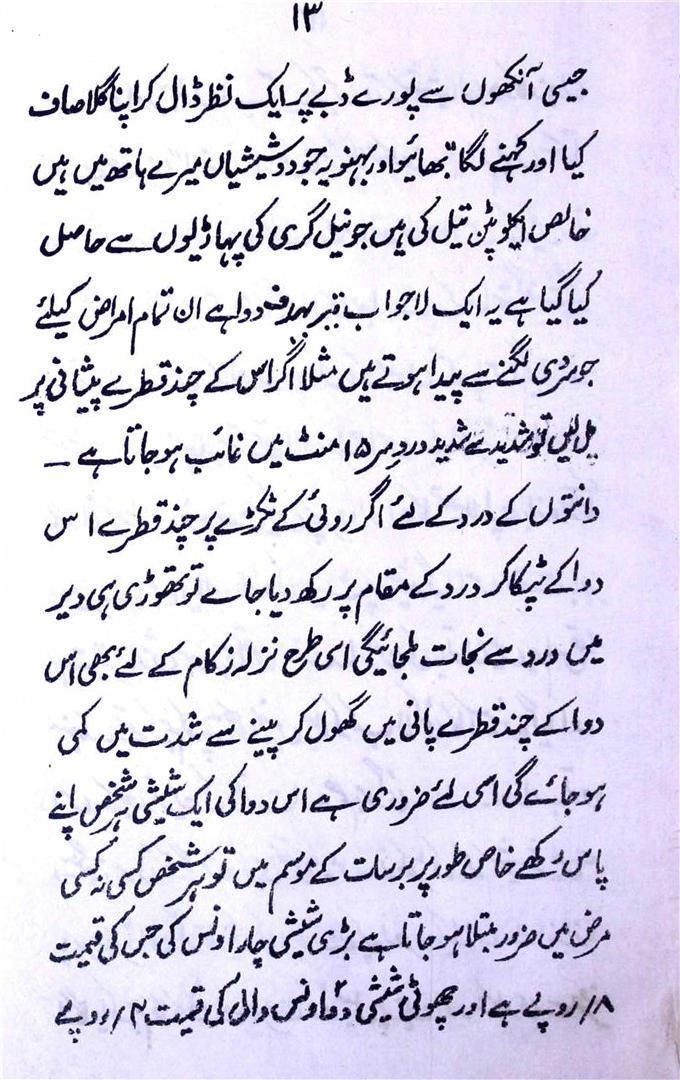 ۱۳
جیسی آنکھوں سے پورے ڈبے پر ایک نظر ڈال کر اپنا گلا صاف
کیا اور کہنے لگا بھائیو اور بہنو یہ جو دو شیشیاں میرے ہاتھ میں ہیں
خالص ایکلو پٹن تیل کی ہیں جو نیل گری کی پہاڑیوں سے حاصل
کیا گیا ہے یہ ایک لاجواب تیر بہدف دوا ہے ان تمام امراض کیلئے
جو سردی لگنے سے پیدا ہوتے ہیں مثلا اگر اس کے چند قطرے پیشانی پر
مل لیں تو شدید سے شدید دردِ سر ۱۵ منٹ میں غائب ہو جاتا ہے ۔
دانتوں کے درد کے لئے اگر روئی کے ٹکڑے پر چند قطرے اس
دوا کے ٹپکا کر درد کے مقام پر رکھ دیا جاے تو تھوڑی ہی دیر
میں درد سے نجات ملجائیگی اسی طرح نزلہ زکام کے لئے بھی اس
دوا کے چند قطرے پانی میں گھول کر پینے سے شدت میں کمی
ہو جائے گی اسی لئے ضروری ہے اس دوا کی ایک شیشی ہر شخص اپنے
پاس رکھے خاص طور پر برسات کے موسم میں تو ہر شخص کسی نہ کسی
مرض میں ضرور مبتلا ہو جاتا ہے بڑی شیشی چار اونس کی جس کی قیمت
۸/ روپے ہے اور چھوٹی شیشی دو اونس والی کی قیمت ۴/ روپے